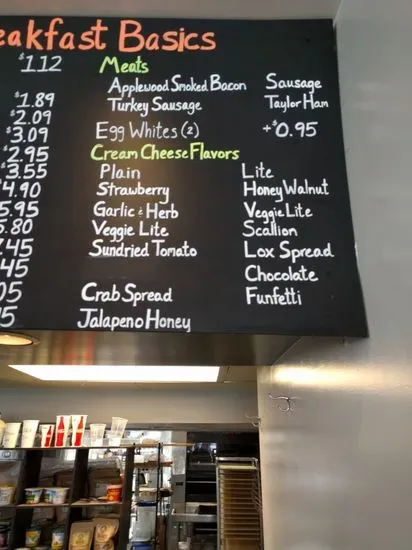 eakfast Basics
$1.12 Meats
Applewood Smoked Bacon Sausage
$1.89 Turkey Sausage Taylor Ham
$2.09
$3.09 Egg Whites (2) +$0.95
$2.95 Cream Cheese Flavors
$3.55 Plain Lite
4.90 Strawberry Honey Walnut
5.95 Garlic & Herb Veggie Lite
5.80 Veggie Lite Scallion
.45 Sundried Tomato Lox Spread
45 Chocolate
05 Crab Spread Funfetti
5 Jalapeno Honey